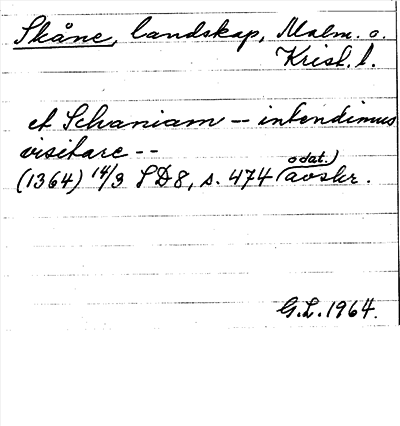 Skåne, landskap, Malm. o.
Krist. l.
et Schaniam -- intendimus
visitare --
(1364) 14/3 SD 8, s. 474 (odat.) avskr.
G.L. 1964.